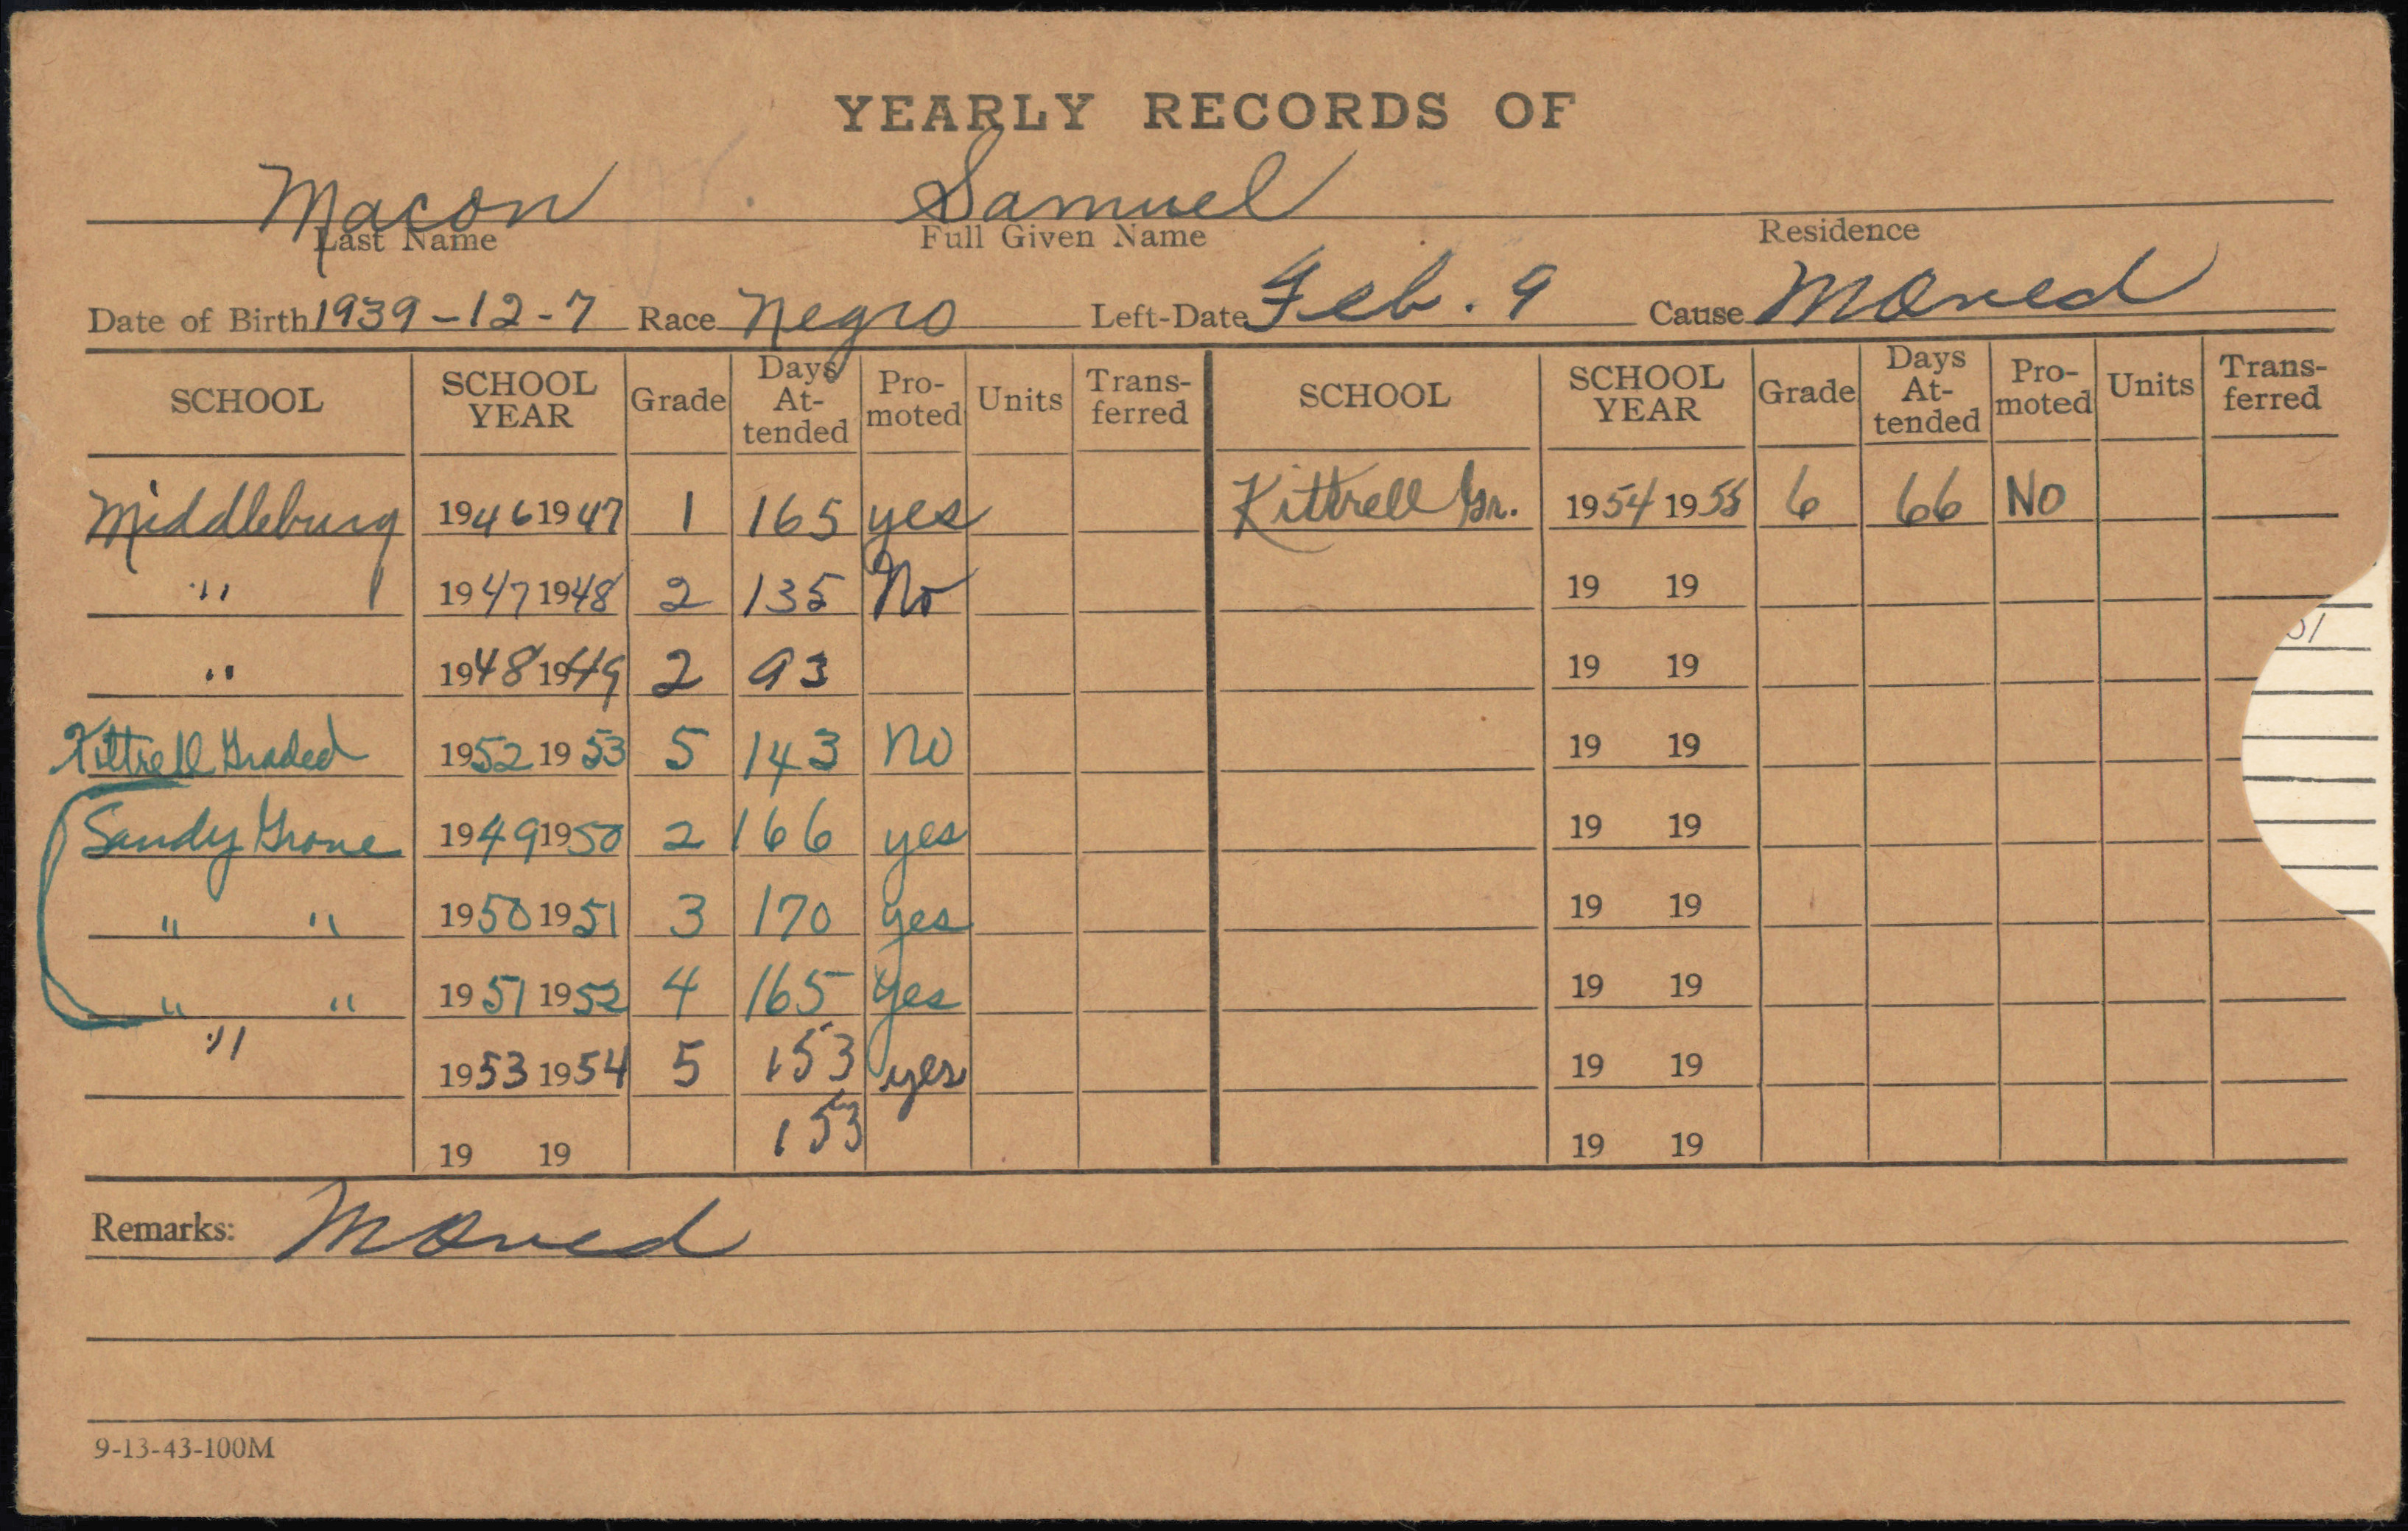 YEARLY RECORDS OF
Macon Samuel
Last Name Full Given Name Residence
Date of Birth 1939-12-7 Race Negro Left-Date Feb. 9 Cause Moved
SCHOOL SCHOOL YEAR Grade Days At-tended Pro-moted Units Trans-ferred SCHOOL SCHOOL YEAR Grade Days At-tended Pro-moted Units Trans-ferred
Middleburg 1946 1947 1 165 yes Kittrell Gr. 1954 1955 6 66 No
" 1947 1948 2 135 No 19 19
" 1948 1949 2 93 19 19
Kittrell Graded 1952 1953 5 143 no 19 19
Sandy Grove 1949 1950 2 166 yes 19 19
" " 1950 1951 3 170 yes 19 19
" " 1951 1952 4 165 yes 19 19
" 1953 1954 5 153 yes 19 19
19 19 153 19 19
Remarks: Moved
9-13-43-100M